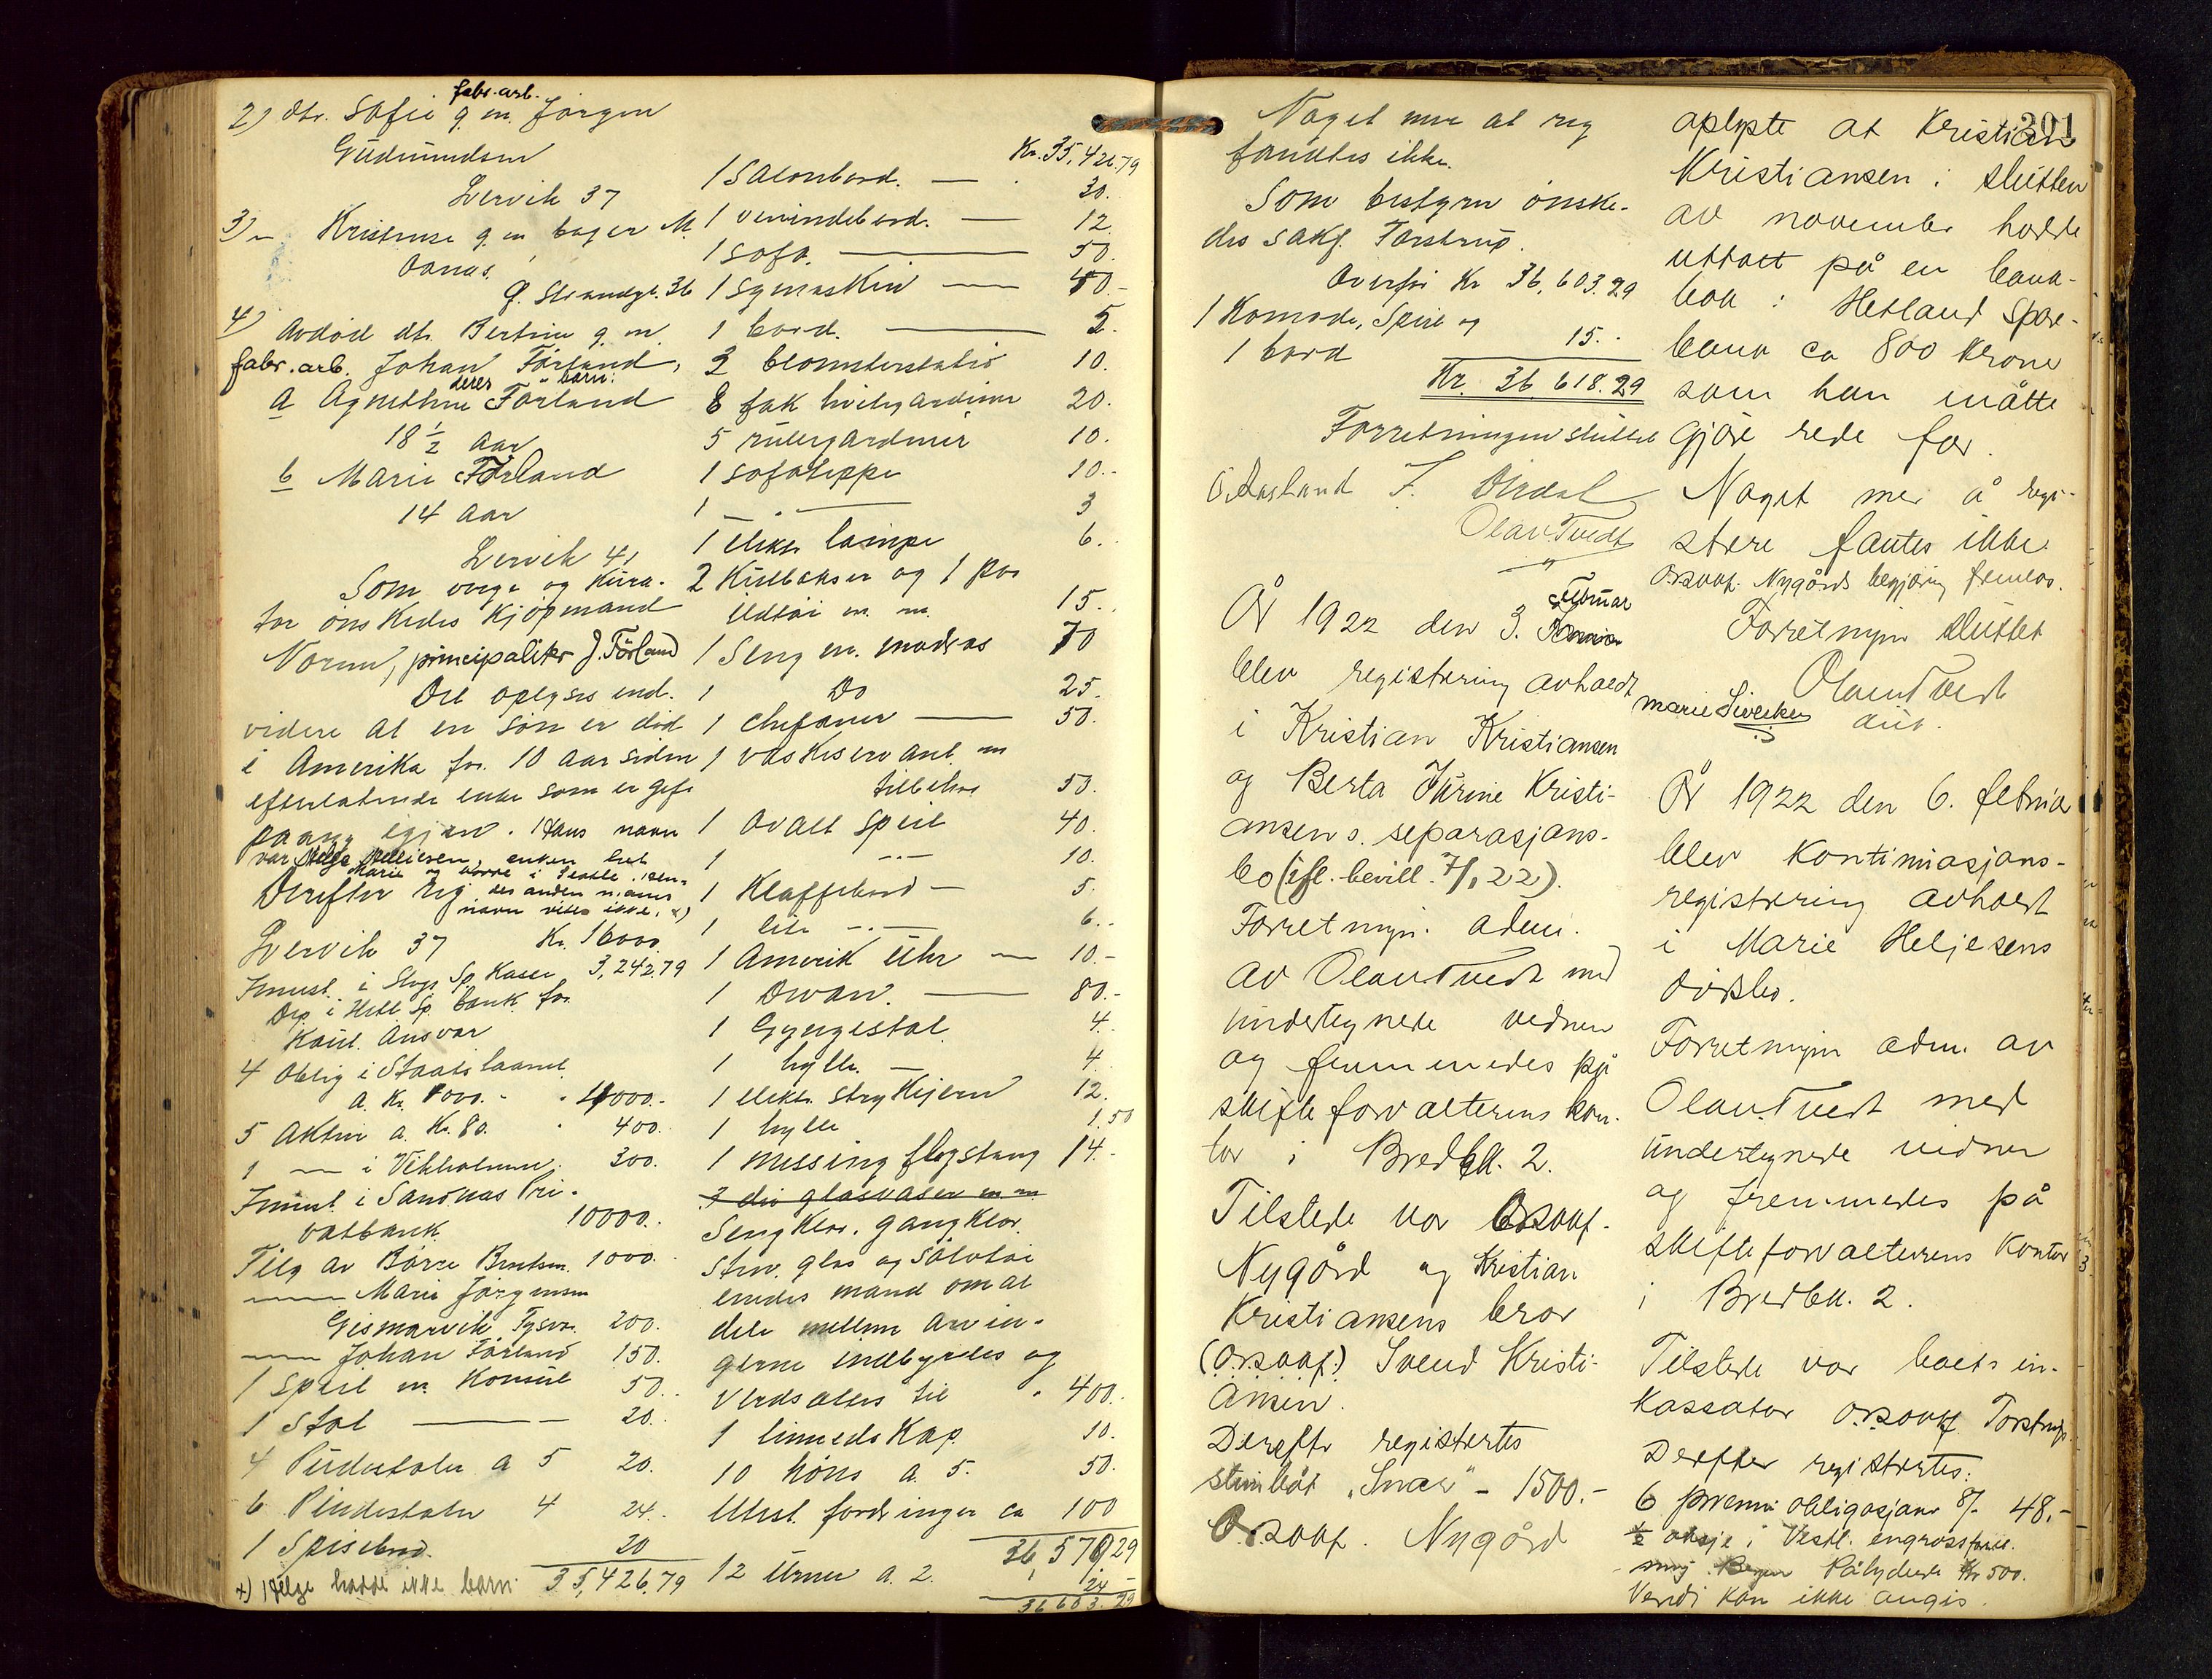 fabr. arb.
2) dtr. Sofie g. m. Jörgen
Gudmundsen
Lervik 37
3) " Kristense g. m. bager M.
Aanas.
Ø. Strandgt. 36
4) Avdöd dtr. Bertine g. m.
fabr. arb. Johan Förland,
deres barn:
a Agnethe Förland
18 1/2 aar
b Marie Förland
14 aar
Lervik 41
Som verge og Kura-
tor önskedes Kjöpmand
principaliter J. Förland
Det oplyses end-
videre at en sön er död
i Amerika for 10 aar siden
efterlatende enke som er gift
paany igjen. Hans navn
var Helge Velliesen, enken het
Marie og bodde i Seattle
den anden mans
Derefter reg.
navn vites ikke. x)
Lervik 37 Kr. 16000
Innest. i Stvgr. Sp. Kasse 3,242.79
Dep. i Hetl. Sp. bank for
Kaut. Ansvar
4 Oblig i Statslaanet
a. Kr. 1000. - " 4000.-
5 Aktier a. Kr. 80. " 400.
1 " i Vikholmen. 300.
Innest. i Sandnæs Pri-
vatbank 10000.-
Tilg. av Börre Bentsen. 1000.
" Marie Jörgensen
Gismarvik Tysvær 200.
" Johan Förland 150.
1 Speil m. Konsul 50.-
1 Stol — 20.
4 Pindestoler a 5 20.
6 Pindestoler 4 24.
1 Spisebord. 20
35,426.79
x) Helge hadde ikke barn.
Kr. 35,426.79
1 Salonbord. — 30.
1 vevindebord. — 12.
1 sofa. — 50.
1 symaskin — 40.-
1 bord. — 5.
2 blomsterstativ 10.
8 fak hvitegardiner 20.
5 rullegardiner 10.
1 sofateppe 10.-
1 — " — 3
1 elektr. lampe 6.
2 Kulbokser og 1 par
ildtöi m. m. 15.
1 Seng m. madras 70
1 Do 25.
1 chefoner — 50.
1 vaskeservant m
tilbehör 50.
1 Ovalt speil 40.
1 -"- 10.
1 Klaffebord — 5.
1 lite -"- 6.-
1 Amerik Uhr — 10.-
1 Divan. — 80.-
1 Gyngestol. 4.
1 hylle. — 4.
1 elektr. strykejern 12.
1 hylle 1.50
1 messing flagstang 14.-
3 div glasvaser m m
Seng Klær. gang Klær.
Stentöi, glas og Sölvtöi
enedes mand om at
dele mellem arvin-
gerne indbyrdes og
verdsattes til " 400.
1 linnedskap 10.
10 höns a. 5. 50.
Utest. fordringer ca 100
36,579.29
12 Urner a. 2. 24 -
36,603.29
Noget mer at reg
fandtes ikke.
Som bestyrer önske-
des sakf. Torstrup.
Overför Kr 36,603.29
1 Komode, Speil og
1 bord 15..
Kr. 36.618.29
Forretningen sluttet
O Aasland F. Dirdal
Olav Tvedt
"
Februar
År 1922 den 3. Januar
blev registrering avholdt
i Kristian Kristiansen
og Berta Jürine Kristi-
ansens separasjons-
bo (ifl. bevill. 7/1 22).
Forretnin. adm.
av Olav Tvedt med
undertegnede vidner
og fremmedes på
skifteforvalterens kon-
tor i Bredbk. 2.
Tilstede var Orsakf.
Nygård og Kristian
Kristiansens bror
(orsakf.) Svend Kristi-
ansen.
Derefter registertes
stimbåt „Snar" - 1500.-
Orsakf. Nygård
301
oplyste at Kristian
Kristiansen i slutten
av november hadde
uttatt på en bank-
bok i Hetland Spare-
bank ca 800 kroner
som han måtte
gjöre rede for.
Noget mer å regi-
strere fantes ikke
Orsakf. Nygårds begjæring fremlos.
Forretningen sluttet
Olav Tvedt
Marie Sivertsen
År 1922 den 6. februar
blev Kontinuasjons-
registrering avholdt
i Marie Heljesens
dödsbo.
Forretningen adm. av
Olav Tvedt med
undertegnede vidner
og fremmedes på
skifteforvalterens Kontor
i Bredbk. 2.
Tilstede var boets in-
kassator orsakf Torstrup.
Derefter registrertes:
6 premi obligasjoner 8/- 48.-
1/2 aksje i Vestl. engrosforre-
ning Pålydende Kr 500.
Verdi kan ikke angis.